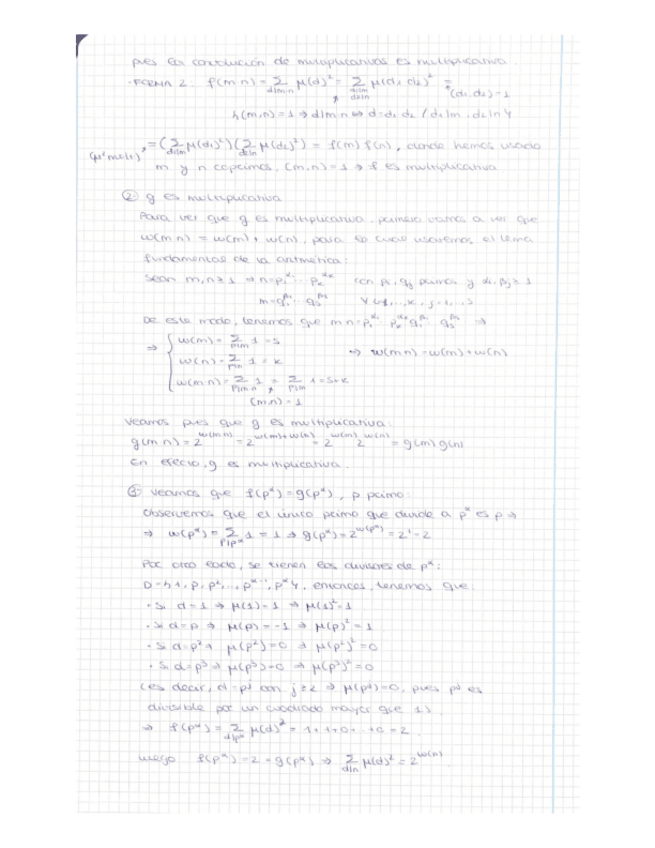 pues la convolución de multiplicativas es multiplicativa.
-FORMA 2: f(m·n) = Σ_{d|m·n} μ(d)² = Σ_{d₁|m, d₂|n} μ(d₁ d₂)² = (d₁,d₂)=1
h(m,n)=1 ⇒ d|m·n ⇔ d=d₁ d₂ / d₁|m, d₂|n
= (Σ_{d₁|m} μ(d₁)²)(Σ_{d₂|n} μ(d₂)²) = f(m) f(n), donde hemos usado
(μ² mult)
m y n coprimos, (m,n)=1 ⇒ f es multiplicativa
② g es multiplicativa
Para ver que g es multiplicativa, primero vamos a ver que
w(m·n) = w(m) + w(n), para lo cual usaremos el tema
fundamental de la aritmética:
Sean m,n≥1 ⇒ n=p₁^{α₁}...p_k^{α_k} con pᵢ, qⱼ primos y αᵢ, βⱼ≥1
m=q₁^{β₁}...q_s^{β_s} ∀ i=1,...,k, j=1,...,s
De este modo, tenemos que m·n=p₁^{α₁}...p_k^{α_k} q₁^{β₁}...q_s^{β_s} ⇒
⇒ { w(m) = Σ_{p|m} 1 = s
w(n) = Σ_{p|n} 1 = k ⇒ w(m·n) = w(m) + w(n)
w(m·n) = Σ_{p|m·n} 1 = Σ_{p|n} 1 = s+k
(m,n)=1
Veamos pues que g es multiplicativa:
g(m·n) = 2^{w(m·n)} = 2^{w(m)+w(n)} = 2^{w(m)} 2^{w(n)} = g(m) g(n)
En efecto, g es multiplicativa.
③ Veamos que f(p^α) = g(p^α), p primo:
Observemos que el único primo que divide a p^α es p ⇒
⇒ w(p^α) = Σ_{p|p^α} 1 = 1 ⇒ g(p^α) = 2^{w(p^α)} = 2¹ = 2
Por otro lado, se tienen los divisores de p^α:
D={1, p, p²,..., p^{α-1}, p^α}, entonces, tenemos que:
• Si d=1 ⇒ μ(1)=1 ⇒ μ(1)²=1
• Si d=p ⇒ μ(p)=-1 ⇒ μ(p)²=1
• Si d=p² ⇒ μ(p²)=0 ⇒ μ(p²)²=0
• Si d=p³ ⇒ μ(p³)=0 ⇒ μ(p³)²=0
(es decir, d=p^j con j≥2 ⇒ μ(p^j)=0, pues p^j es
divisible por un cuadrado mayor que 1).
⇒ f(p^α) = Σ_{d|p^α} μ(d)² = 1+1+0+...+0 = 2.
Luego f(p^α)=2=g(p^α) ⇒ Σ_{d|n} μ(d)² = 2^{w(n)}.